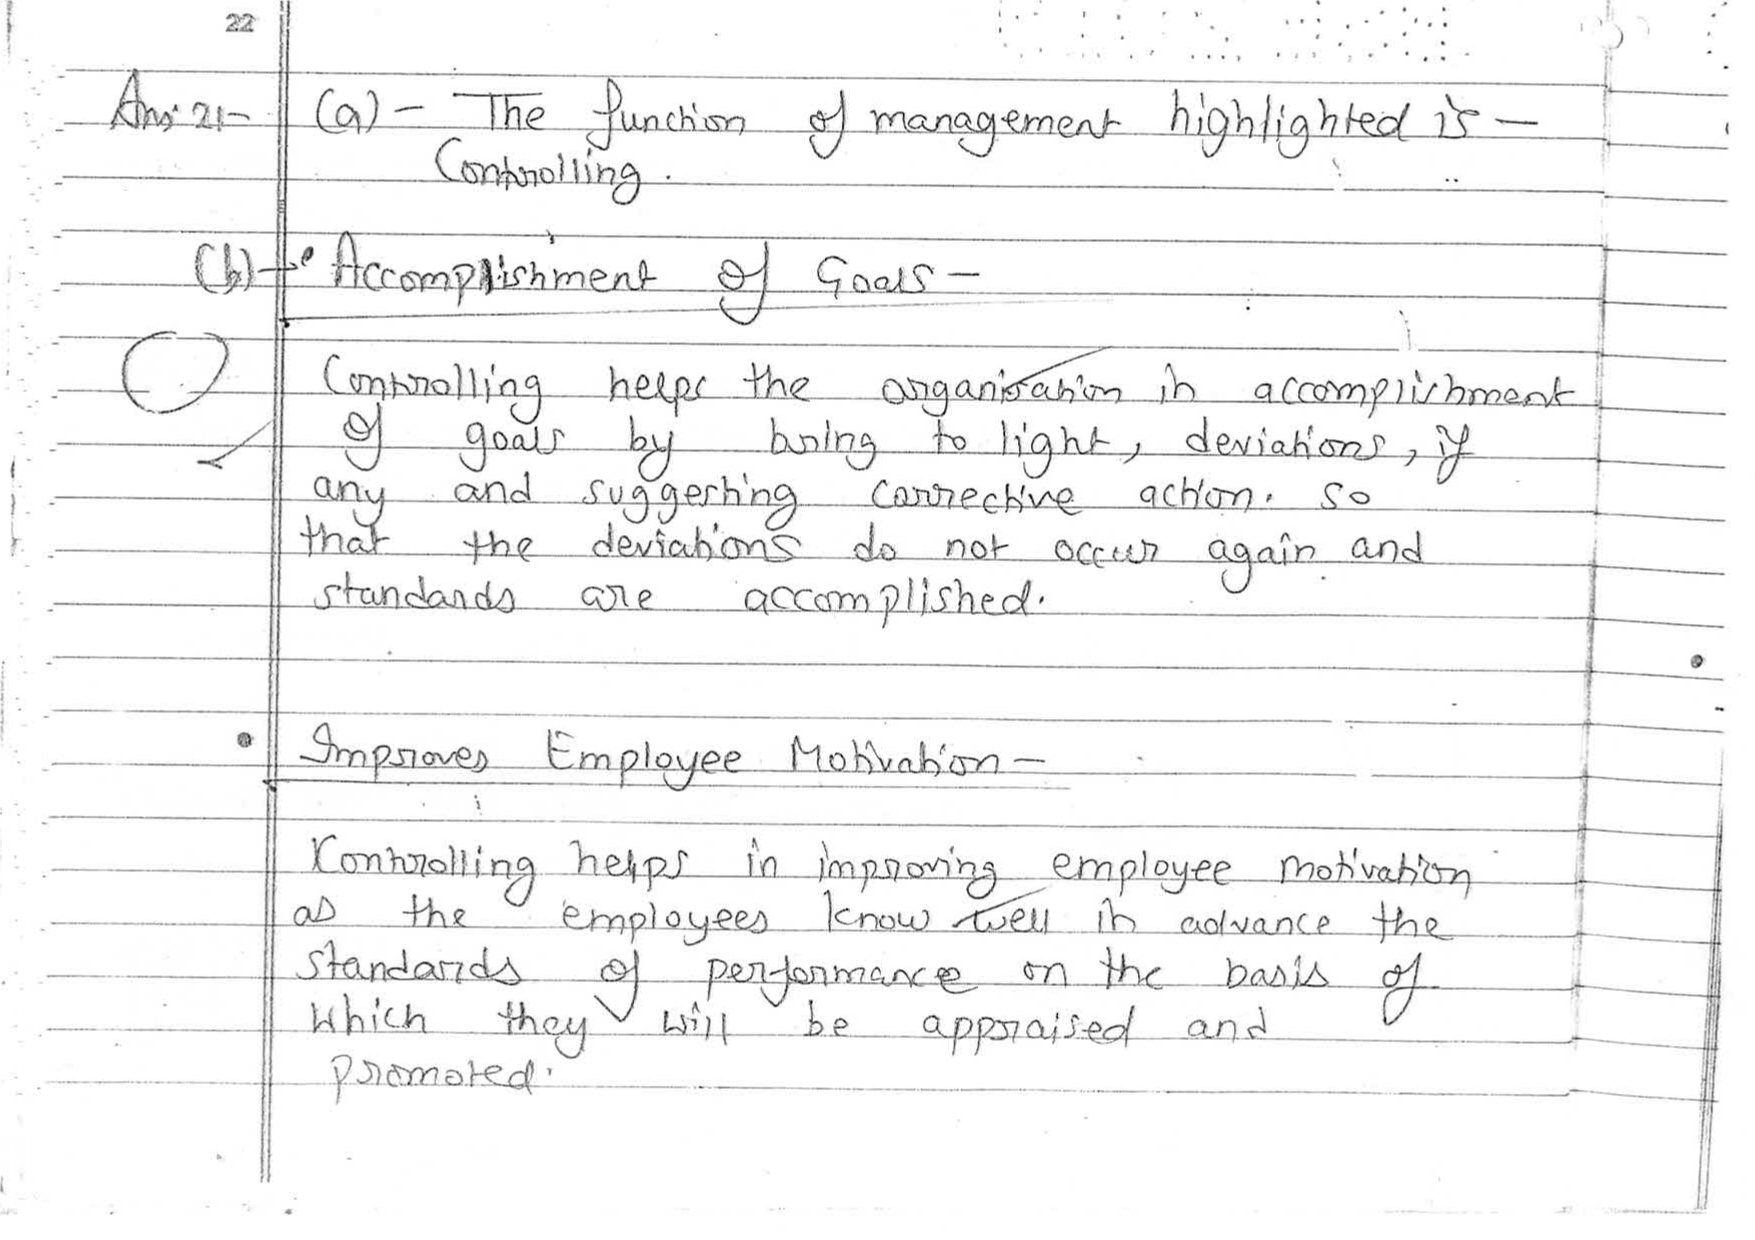 22
Ans 21- (a) - The function of management highlighted is -
Controlling.
(b) → • Accomplishment of Goals -
Controlling helps the organisation in accomplishment
of goals by bring to light, deviations, if
any and suggesting corrective action. So
that the deviations do not occur again and
standards are accomplished.
• Improves Employee Motivation -
Controlling helps in improving employee motivation
as the employees know well in advance the
standards of performance on the basis of
which they will be appraised and
promoted.